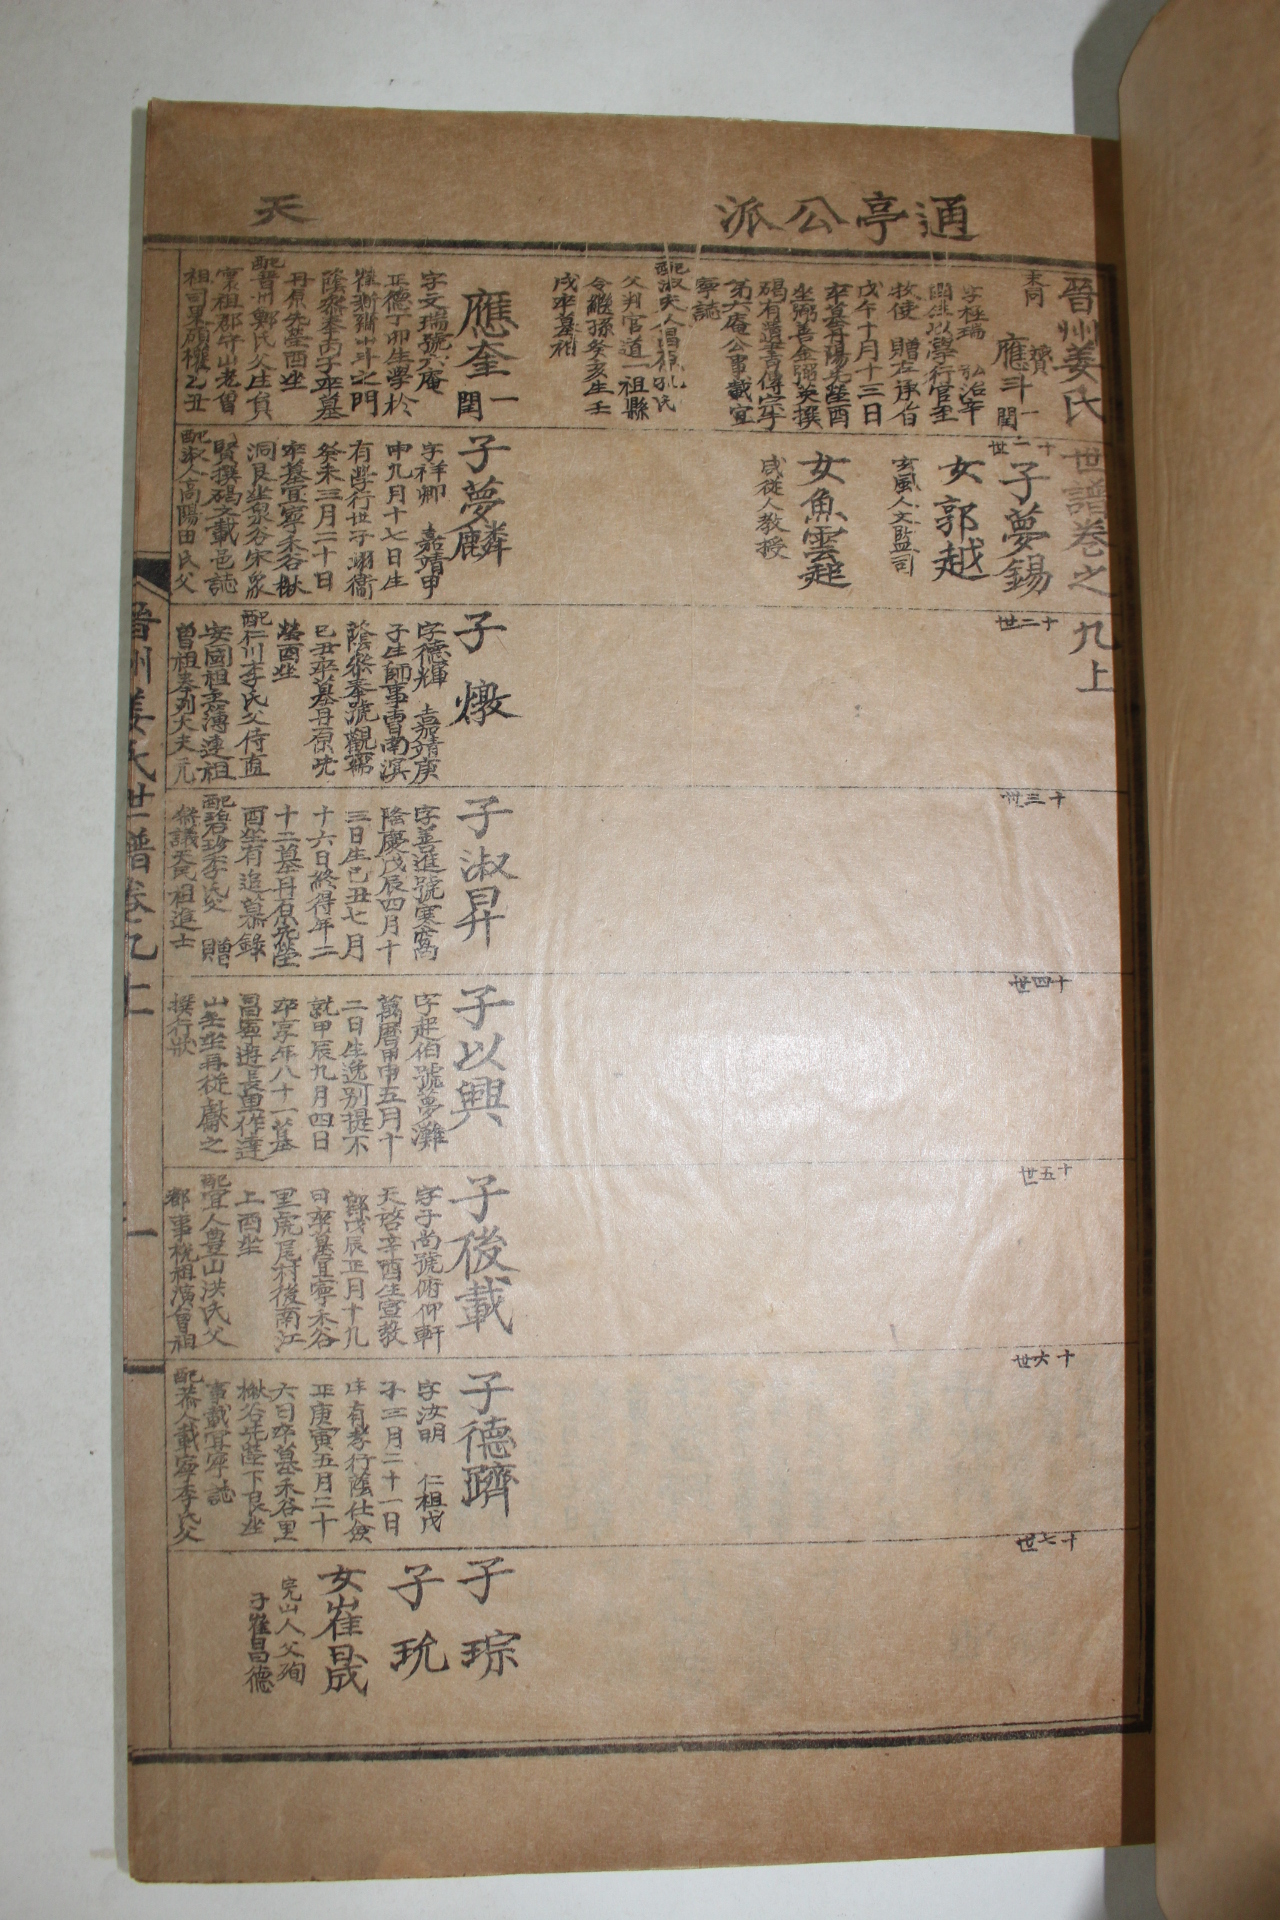 通亭公派
天
晉州姜氏世譜卷之九上
應斗
字極瑞 弘治辛
牧使 贈左承旨
戊午十月十三日
卒墓丹陽
坐弼善金弼英撰
碣有遺書
第六庵公事載宜
寧誌
父判官道一祖縣
令繼孫癸亥生壬
戌卒墓祔
應奎
字文瑞號六庵
正德丁卯生學於
崔斯斗之門
蔭參奉丙子卒墓
丹原先塋酉坐
配晉州鄭氏父生員
寰祖郡守山老曾
祖司果碩權乙丑
十二世
子夢錫
女郭越
玄風人文監司
女魚雲
咸從人教授
子夢麟
字祥卿 嘉靖甲
申九月十七日生
有學行世子翊衛
癸未三月二十日
卒墓宜寧禾谷楸
洞艮坐
賢撰碣文載邑誌
配淑人高陽田氏父
十二世
子燉
字德輝 嘉靖庚
子生師事曺南溟
蔭參奉號觀
己丑卒墓丹原先
塋酉坐
配仁川李氏父侍直
安國祖主簿連祖
曾祖奉列大夫元
十三世
子淑昇
字善進號寒窩
隆慶戊辰四月十
三日生己丑七月
十六日終得年二
十二墓丹原先塋
酉坐有追慕錄
配碧珍李氏父 贈
參議天民祖進士
十四世
子以興
字起伯號夢灘
萬曆甲申五月十
二日生逸別提不
就甲辰九月四日
卒享年八十一墓
昌寧遊長里作達
山坐再從獻之
撰行狀
十五世
子後載
字子尚號俯仰軒
天啓辛酉生宣教
郎戊辰正月十九
日卒墓宜寧禾谷
里虎尾村後南江
上酉坐
配宜人豊山洪氏父
都事 祖 曾祖
十六世
子德躋
字汝明 仁祖戊
子三月二十一日
生有孝行蔭仕僉
正庚寅五月二十
六日卒墓禾谷里
楸谷先塋下艮坐
事載宜寧誌
配恭人載寧李氏父
十七世
子琮
子玧
女崔晟
完山人父珣
子崔昌德
晉州姜氏世譜卷九上
一